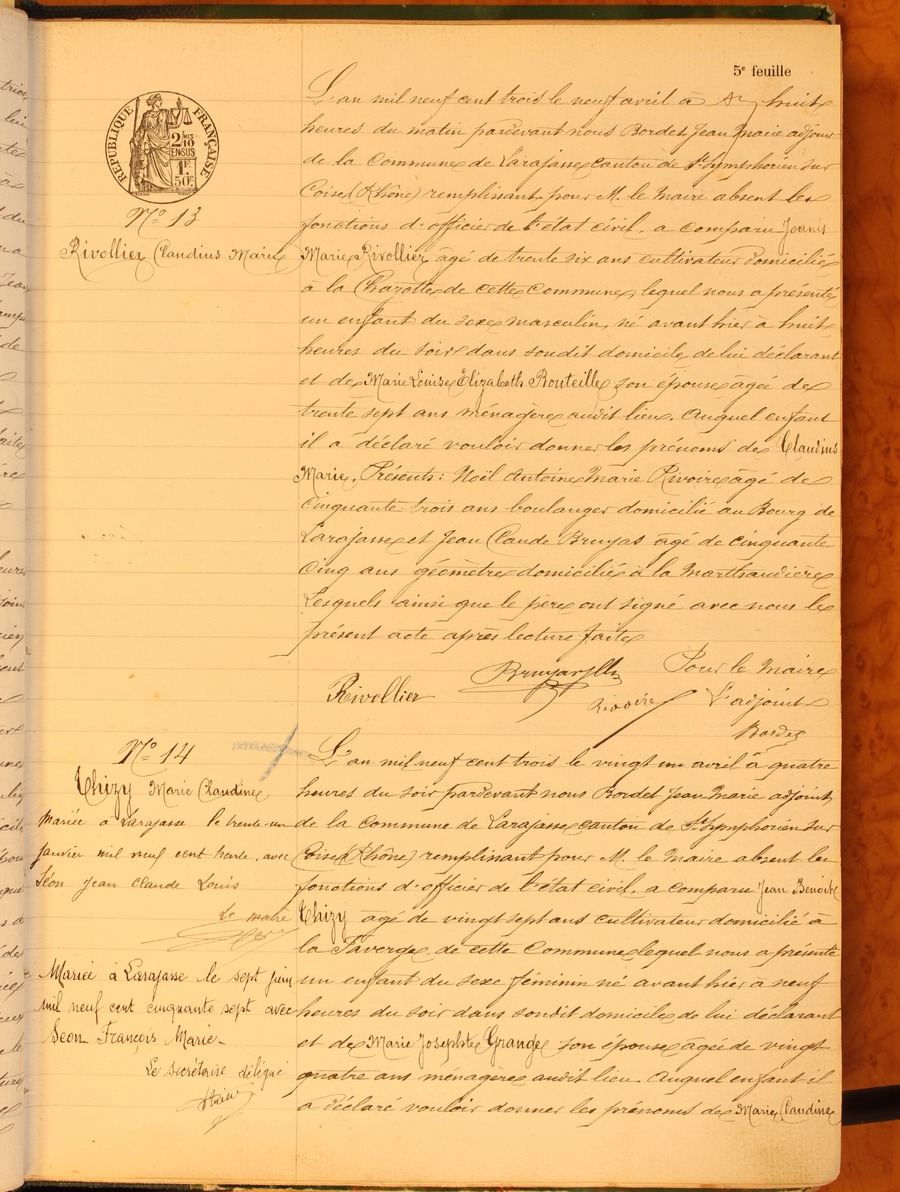 5e feuille
RÉPUBLIQUE FRANÇAISE
2/10
EN SUS
1F
50c
No 13
Rivollier Claudius Marie
L'an mil neuf cent trois le neuf avril à huit
heures du matin pardevant nous Bordet Jean Marie adjoint
de la Commune de Larajasse canton de St Symphorien sur
Coise (Rhône) remplissant pour M. le Maire absent les
fonctions d'officier de l'état civil, a comparu Joanis
Marie Rivollier âgé de trente six ans cultivateur domicilié
à la Chazotte de cette Commune, lequel nous a présenté
un enfant du sexe masculin, né avant hier à huit
heures du soir dans son dit domicile, de lui déclarant
et de Marie Louise Elizabeth Bouteille son épouse âgée de
trente sept ans ménagère audit lieu. Auquel enfant
il a déclaré vouloir donner les prénoms de Claudius
Marie. Présents : Noël Antoine Marie Rivoire âgé de
Cinquante trois ans boulanger domicilié au Bourg de
Larajasse et Jean Claude Bruyas âgé de cinquante
Cinq ans géomètre domicilié à la Marthaudière
Lesquels ainsi que le père ont signé avec nous le
présent acte après lecture faite
Rivollier
Bruyas
Rivoire
Pour le Maire
L'adjoint
Bordet
No 14
Thizy Marie Claudine
Mariée à Larajasse le trente un
janvier mil neuf cent trente, avec
Séon Jean Claude Louis
Le maire
Mariée à Larajasse le sept juin
mil neuf cent cinquante sept avec
Séon François Marie.
Le secrétaire délégué
L'an mil neuf cent trois le vingt un avril à quatre
heures du soir pardevant nous Bordet Jean Marie adjoint
de la Commune de Larajasse canton de St Symphorien sur
Coise (Rhône) remplissant pour M. le Maire absent les
fonctions d'officier de l'état civil, a comparu Jean Benoit
Thizy âgé de vingt sept ans cultivateur domicilié à
la de cette Commune lequel nous a présenté
un enfant du sexe féminin né avant hier à neuf
heures du soir dans son dit domicile, de lui déclarant
et de Marie Josephte Grange son épouse âgée de vingt
quatre ans ménagère audit lieu. Auquel enfant il
a déclaré vouloir donner les prénoms de Marie Claudine